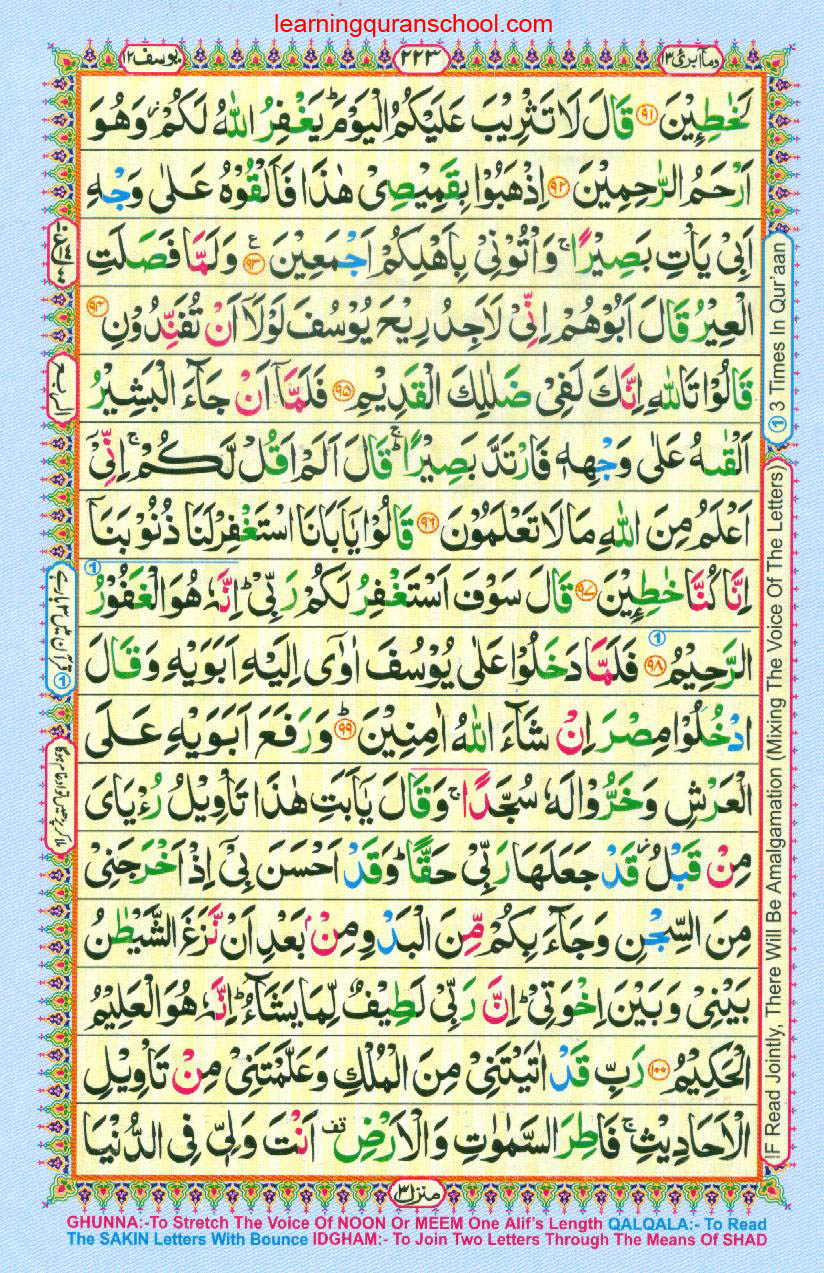 learningquranschool.com
وما أبرئ ١٣
٢٢٣
يوسف ١٢
لَخٰطِـِٕيْنَ ٩١ قَالَ لَا تَثْرِيْبَ عَلَيْكُمُ الْيَوْمَ ؕ يَغْفِرُ اللّٰهُ لَكُمْ ؗ وَهُوَ
اَرْحَمُ الرّٰحِمِيْنَ ٩٢ اِذْهَبُوْا بِقَمِيْصِيْ هٰذَا فَاَلْقُوْهُ عَلٰى وَجْهِ
اَبِيْ يَاْتِ بَصِيْرًا ۚ وَاْتُوْنِيْ بِاَهْلِكُمْ اَجْمَعِيْنَ ٩٣ ع وَلَمَّا فَصَلَتِ
الْعِيْرُ قَالَ اَبُوْهُمْ اِنِّيْ لَاَجِدُ رِيْحَ يُوْسُفَ لَوْلَاۤ اَنْ تُفَنِّدُوْنِ ٩٤
قَالُوْا تَاللّٰهِ اِنَّكَ لَفِيْ ضَلٰلِكَ الْقَدِيْمِ ٩٥ فَلَمَّاۤ اَنْ جَآءَ الْبَشِيْرُ
اَلْقٰىهُ عَلٰى وَجْهِهٖ فَارْتَدَّ بَصِيْرًا ۚ قَالَ اَلَمْ اَقُلْ لَّكُمْ ۚ اِنِّيْ
اَعْلَمُ مِنَ اللّٰهِ مَا لَا تَعْلَمُوْنَ ٩٦ قَالُوْا يٰۤاَبَانَا اسْتَغْفِرْ لَنَا ذُنُوْبَنَاۤ
اِنَّا كُنَّا خٰطِـِٕيْنَ ٩٧ قَالَ سَوْفَ اَسْتَغْفِرُ لَكُمْ رَبِّيْ ؕ اِنَّهٗ هُوَ الْغَفُوْرُ
الرَّحِيْمُ ٩٨ فَلَمَّا دَخَلُوْا عَلٰى يُوْسُفَ اٰوٰۤى اِلَيْهِ اَبَوَيْهِ وَقَالَ
ادْخُلُوْا مِصْرَ اِنْ شَآءَ اللّٰهُ اٰمِنِيْنَ ؕ ٩٩ وَرَفَعَ اَبَوَيْهِ عَلَى
الْعَرْشِ وَخَرُّوْا لَهٗ سُجَّدًا ۚ وَقَالَ يٰۤاَبَتِ هٰذَا تَاْوِيْلُ رُءْيَايَ
مِنْ قَبْلُ ؗ قَدْ جَعَلَهَا رَبِّيْ حَقًّا ؕ وَقَدْ اَحْسَنَ بِيْۤ اِذْ اَخْرَجَنِيْ
مِنَ السِّجْنِ وَجَآءَ بِكُمْ مِّنَ الْبَدْوِ مِنْۢ بَعْدِ اَنْ نَّزَغَ الشَّيْطٰنُ
بَيْنِيْ وَبَيْنَ اِخْوَتِيْ ؕ اِنَّ رَبِّيْ لَطِيْفٌ لِّمَا يَشَآءُ ؕ اِنَّهٗ هُوَ الْعَلِيْمُ
الْحَكِيْمُ ١٠٠ رَبِّ قَدْ اٰتَيْتَنِيْ مِنَ الْمُلْكِ وَعَلَّمْتَنِيْ مِنْ تَاْوِيْلِ
الْاَحَادِيْثِ ۚ فَاطِرَ السَّمٰوٰتِ وَالْاَرْضِ قف اَنْتَ وَلِيّٖ فِي الدُّنْيَا
الربع
① قرآن میں ۳ بار ہے
① 3 Times In Qur'aan
IF Read Jointly, There Will Be Amalgamation (Mixing The Voice Of The Letters)
منزل ٣
GHUNNA:-To Stretch The Voice Of NOON Or MEEM One Alif's Length QALQALA:- To Read
The SAKIN Letters With Bounce IDGHAM:- To Join Two Letters Through The Means Of SHAD